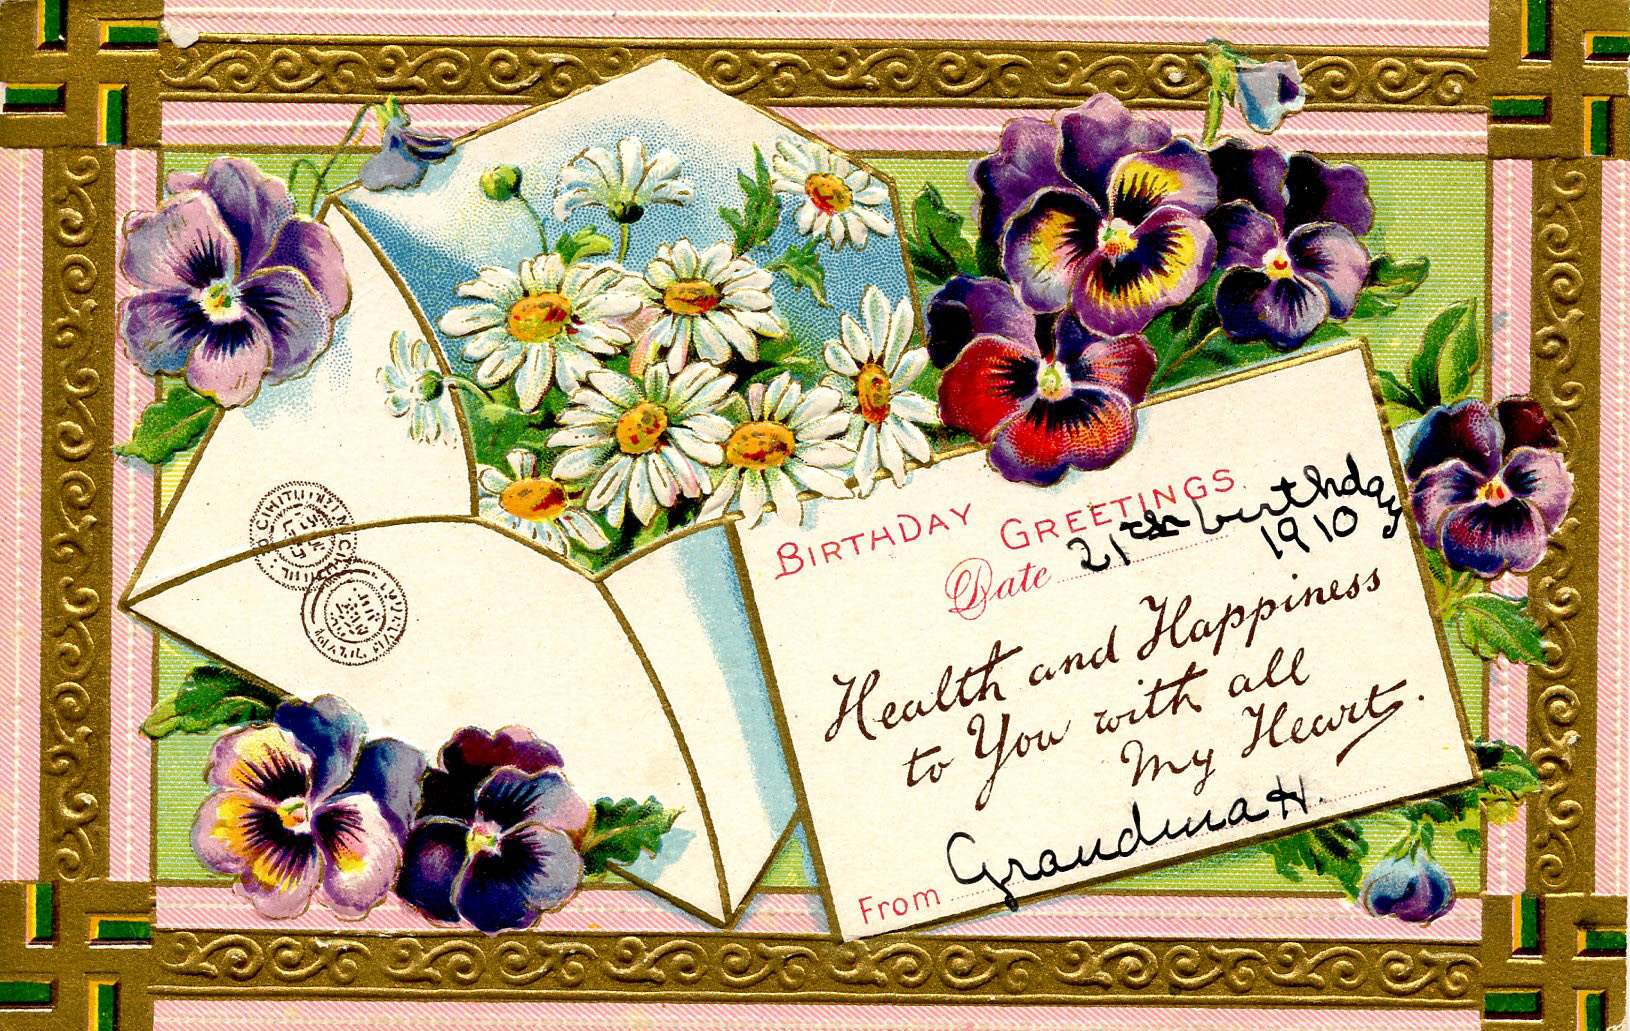 BIRTHDAY GREETINGS
Date 21st birthday
1910
Health and Happiness
to You with all
My Heart.
From Grandma H.